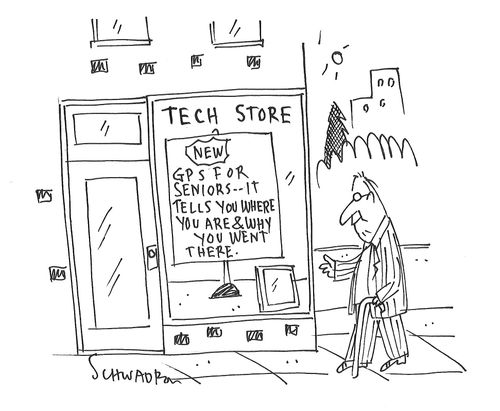 TECH STORE
NEW
GPS FOR
SENIORS--IT
TELLS YOU WHERE
YOU ARE & WHY
YOU WENT
THERE.
SCHWADRON